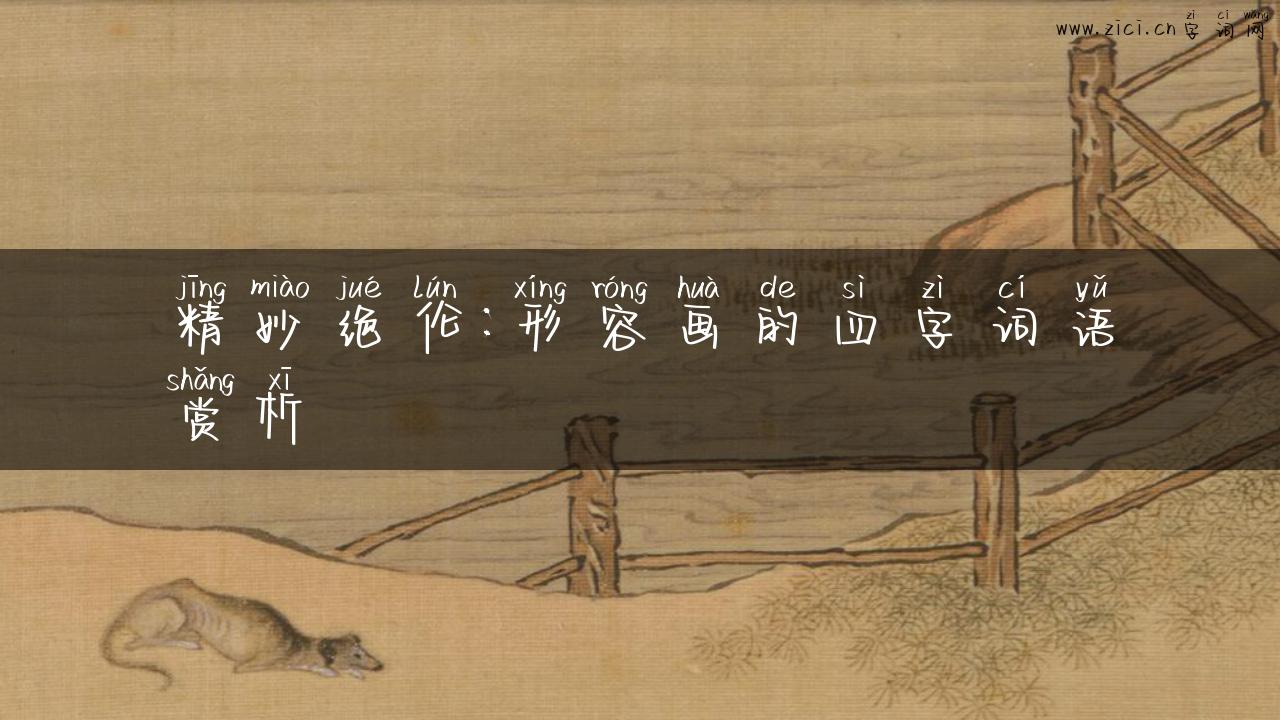 zì cí wǎng
www.zici.cn 字词网
jīng miào jué lún xíng róng huà de sì zì cí yǔ
精妙绝伦：形容画的四字词语
shǎng xī
赏析